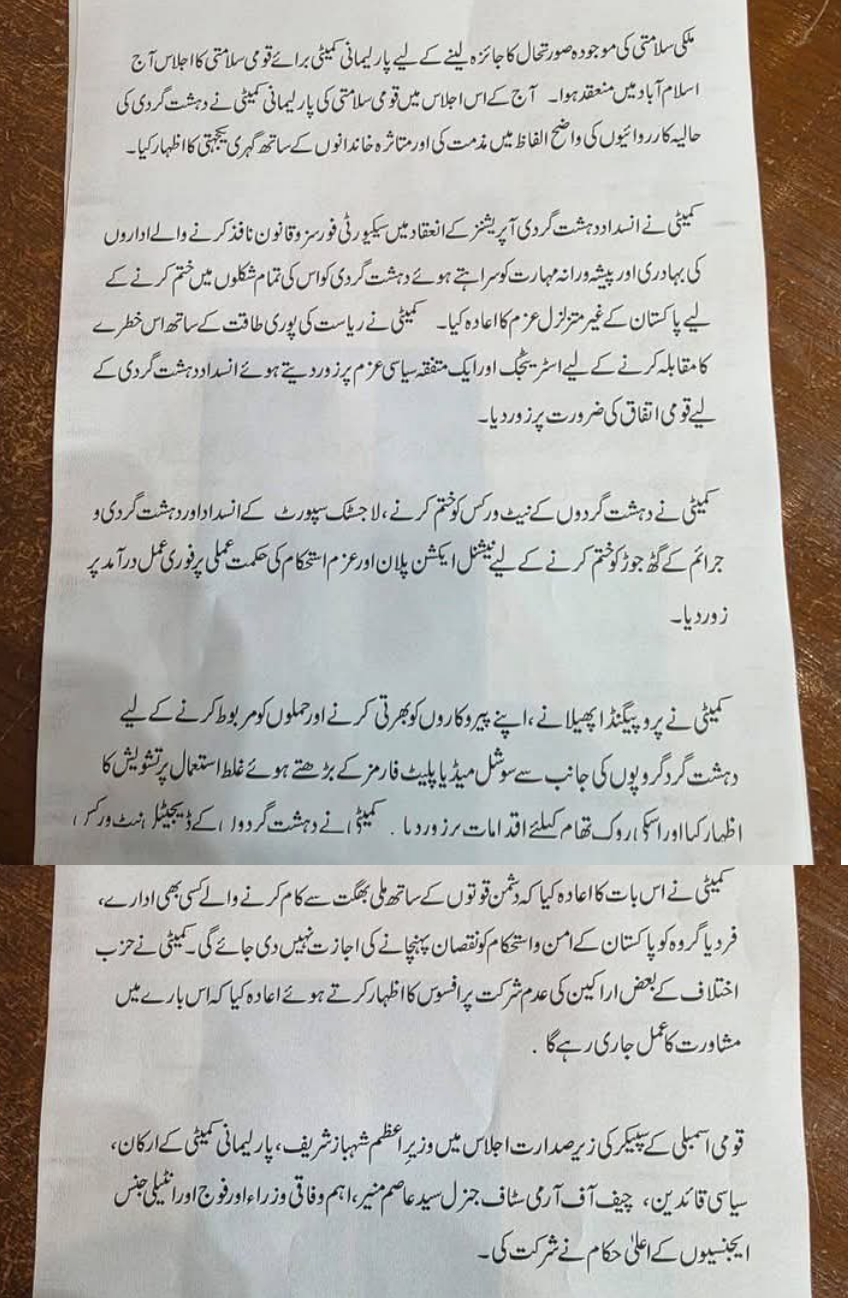 ملکی سلامتی کی موجودہ صورتحال کا جائزہ لینے کے لیے پارلیمانی کمیٹی برائے قومی سلامتی کا اجلاس آج
اسلام آباد میں منعقد ہوا۔ آج کے اس اجلاس میں قومی سلامتی کی پارلیمانی کمیٹی نے دہشت گردی کی
حالیہ کارروائیوں کی واضح الفاظ میں مذمت کی اور متاثرہ خاندانوں کے ساتھ گہری یکجہتی کا اظہار کیا۔
کمیٹی نے انسداد دہشت گردی آپریشنز کے انعقاد میں سیکیورٹی فورسز و قانون نافذ کرنے والے اداروں
کی بہادری اور پیشہ ورانہ مہارت کو سراہتے ہوئے دہشت گردی کو اس کی تمام شکلوں میں ختم کرنے کے
لیے پاکستان کے غیر متزلزل عزم کا اعادہ کیا۔ کمیٹی نے ریاست کی پوری طاقت کے ساتھ اس خطرے
کا مقابلہ کرنے کے لیے اسٹریٹجک اور ایک متفقہ سیاسی عزم پر زور دیتے ہوئے انسداد دہشت گردی کے
لیے قومی اتفاق کی ضرورت پر زور دیا۔
کمیٹی نے دہشت گردوں کے نیٹ ورکس کو ختم کرنے، لاجسٹک سپورٹ کے انسداد اور دہشت گردی و
جرائم کے گٹھ جوڑ کو ختم کرنے کے لیے نیشنل ایکشن پلان اور عزم استحکام کی حکمت عملی پر فوری عمل درآمد پر
زور دیا۔
کمیٹی نے پروپیگنڈا پھیلانے، اپنے پیروکاروں کو بھرتی کرنے اور حملوں کو مربوط کرنے کے لیے
دہشت گرد گروپوں کی جانب سے سوشل میڈیا پلیٹ فارمز کے بڑھتے ہوئے غلط استعمال پر تشویش کا
اظہار کیا اور اسکی روک تھام کیلئے اقدامات پر زور دیا . کمیٹی نے دہشت گردوں کے ڈیجیٹل نیٹ ورکس
کمیٹی نے اس بات کا اعادہ کیا کہ دشمن قوتوں کے ساتھ ملی بھگت سے کام کرنے والے کسی بھی ادارے،
فرد یا گروہ کو پاکستان کے امن و استحکام کو نقصان پہنچانے کی اجازت نہیں دی جائے گی۔ کمیٹی نے حزب
اختلاف کے بعض اراکین کی عدم شرکت پر افسوس کا اظہار کرتے ہوئے اعادہ کیا کہ اس بارے میں
مشاورت کا عمل جاری رہے گا .
قومی اسمبلی کے سپیکر کی زیر صدارت اجلاس میں وزیرِ اعظم شہباز شریف، پارلیمانی کمیٹی کے ارکان،
سیاسی قائدین، چیف آف آرمی سٹاف جنرل سید عاصم منیر، اہم وفاقی وزراء اور فوج اور انٹیلی جنس
ایجنسیوں کے اعلیٰ حکام نے شرکت کی۔